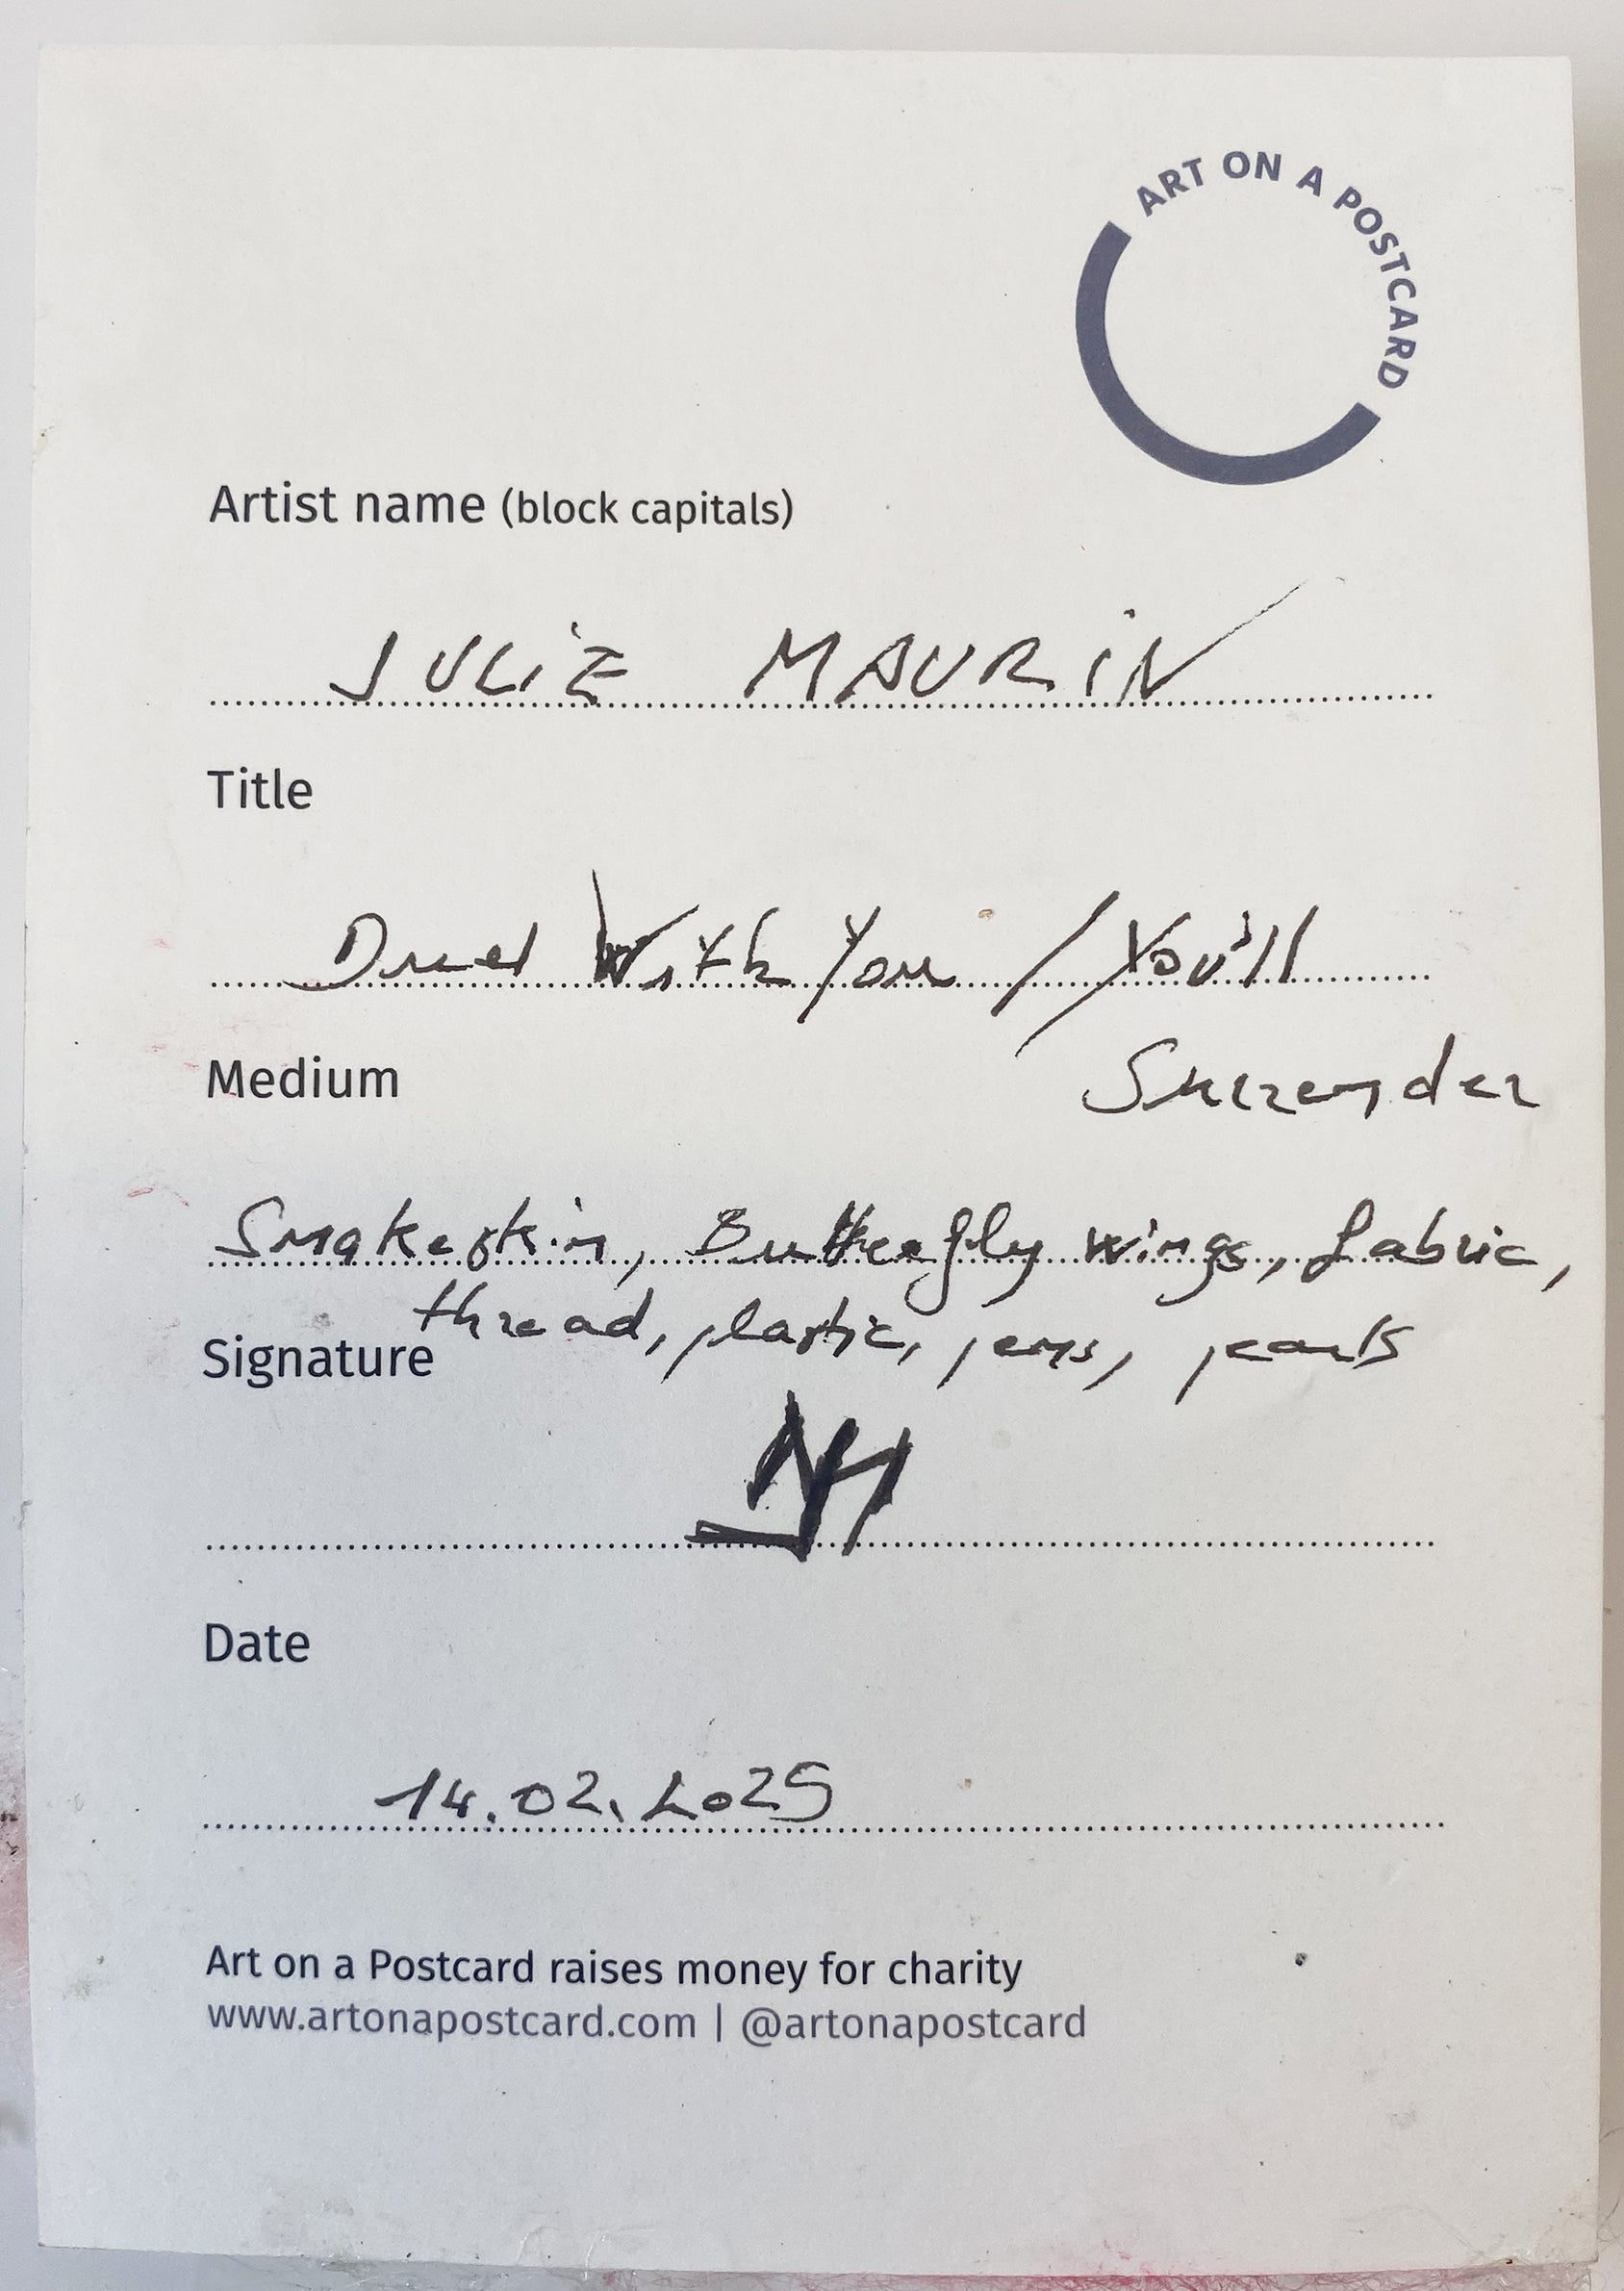 ART ON A POSTCARD
Artist name (block capitals)
JULiE MAURiN
Title
Duel With You / You'll
Surrender
Medium
Snakeskin, Butterfly wings, fabric,
thread, plastic, pearls
Signature
Date
14.02.2025
Art on a Postcard raises money for charity
www.artonapostcard.com | @artonapostcard